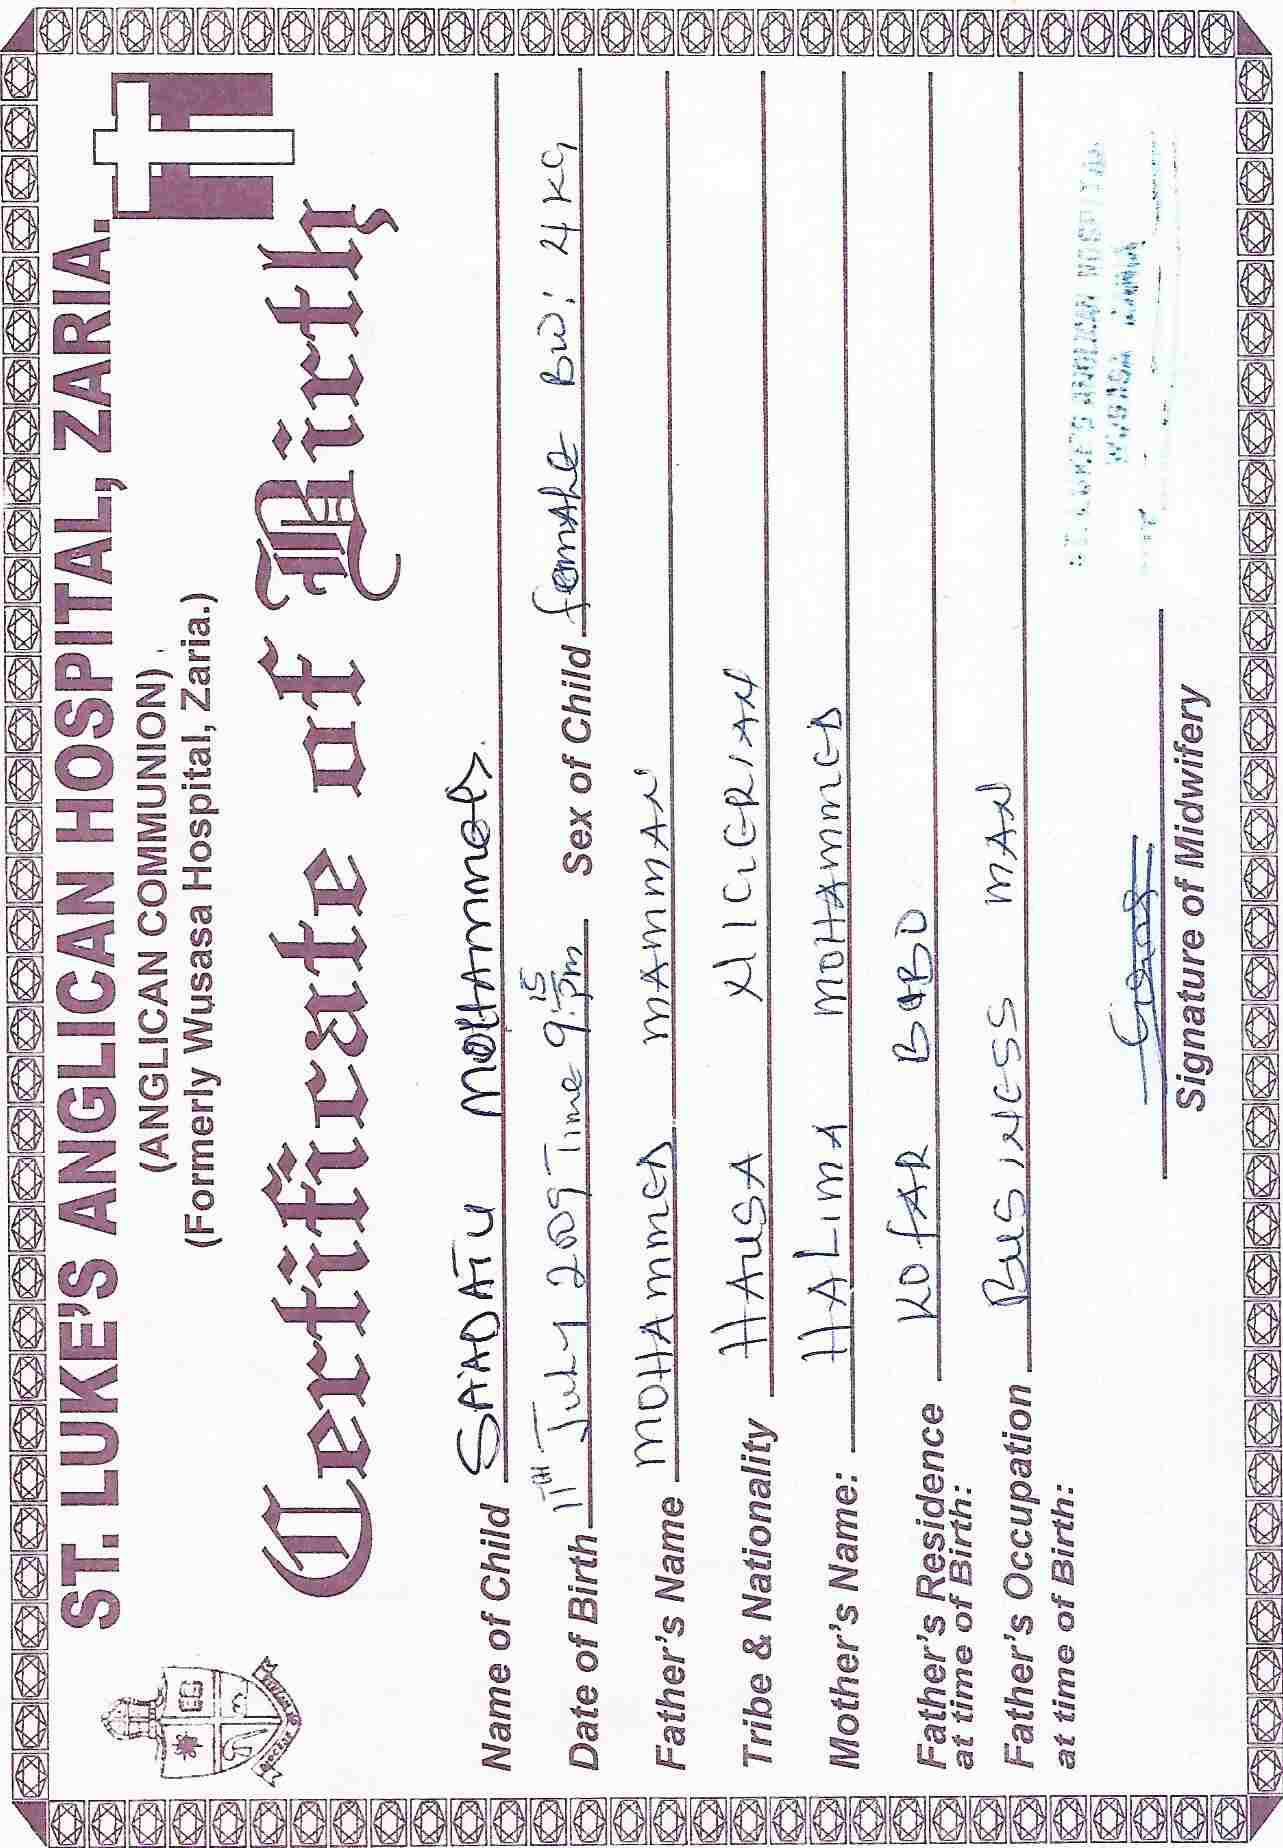 ST. LUKE'S ANGLICAN HOSPITAL, ZARIA.
(ANGLICAN COMMUNION)
(Formerly Wusasa Hospital, Zaria.)
Certificate of Birth
Name of Child SA'ADATU MOHAMMED
Date of Birth 11TH July 2009 Time 9:15pm Sex of Child female BW: 4KG
Father's Name MOHAMMED MAMMAN
Tribe & Nationality HAUSA NIGERIAN
Mother's Name: HALIMA MOHAMMED
Father's Residence KOFAR
at time of Birth:
Father's Occupation BUSINESS MAN
at time of Birth:
ST. LUKE'S ANGLICAN HOSPITAL
WUSASA
Signature of Midwifery